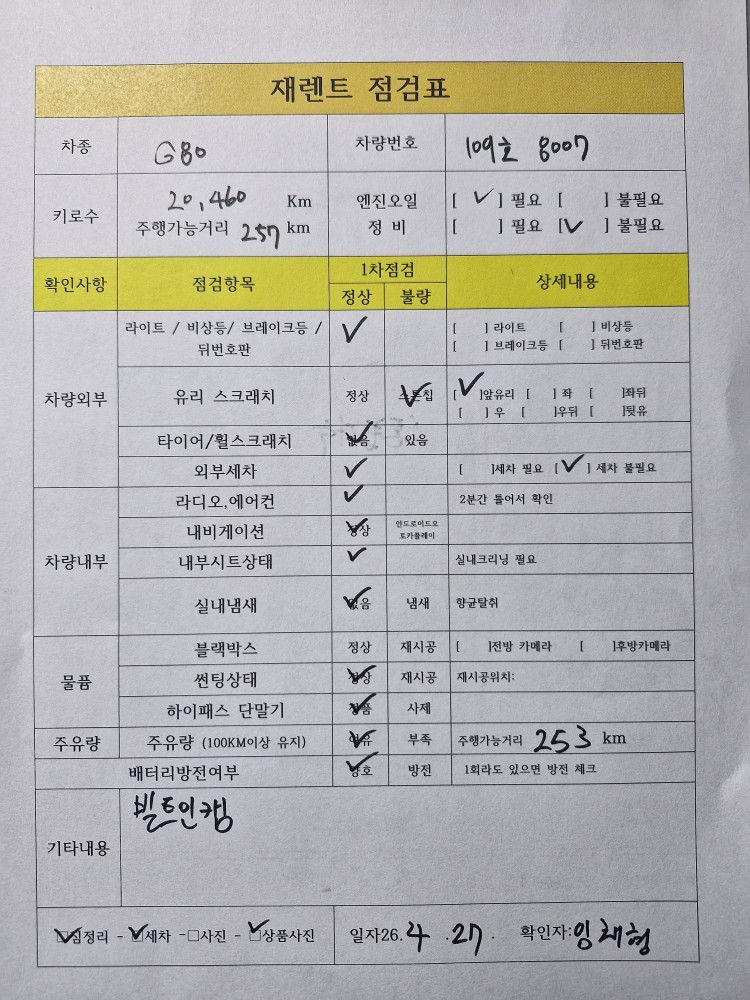 재렌트 점검표
차종 G80 차량번호 109호 8007
키로수 20,460 Km 엔진오일 [ ✓ ] 필요 [ ] 불필요
주행가능거리 257 km 정 비 [ ] 필요 [ ✓ ] 불필요
확인사항 점검항목 1차점검 상세내용
정상 불량
차량외부 라이트 / 비상등/ 브레이크등 / ✓ [ ] 라이트 [ ] 비상등
뒤번호판 [ ] 브레이크등 [ ] 뒤번호판
유리 스크래치 정상 스톤칩 ✓ [ ✓ ]앞유리 [ ] 좌 [ ]좌뒤
[ ] 우 [ ]우뒤 [ ]뒷유
타이어/휠스크래치 없음 ✓ 있음
외부세차 ✓ [ ]세차 필요 [ ✓ ] 세차 불필요
차량내부 라디오,에어컨 ✓ 2분간 틀어서 확인
내비게이션 정상 ✓ 안드로이드오
토카플레이
내부시트상태 ✓ 실내크리닝 필요
실내냄새 없음 ✓ 냄새 향균탈취
물품 블랙박스 정상 재시공 [ ]전방 카메라 [ ]후방카메라
썬팅상태 정상 ✓ 재시공 재시공위치:
하이패스 단말기 정품 ✓ 사제
주유량 주유량 (100KM이상 유지) 여유 ✓ 부족 주행가능거리 253 km
배터리방전여부 양호 ✓ 방전 1회라도 있으면 방전 체크
기타내용 빌트인캠
☑짐정리 - ☑세차 -□사진 - ☑상품사진 일자26. 4 . 27 . 확인자:임채형